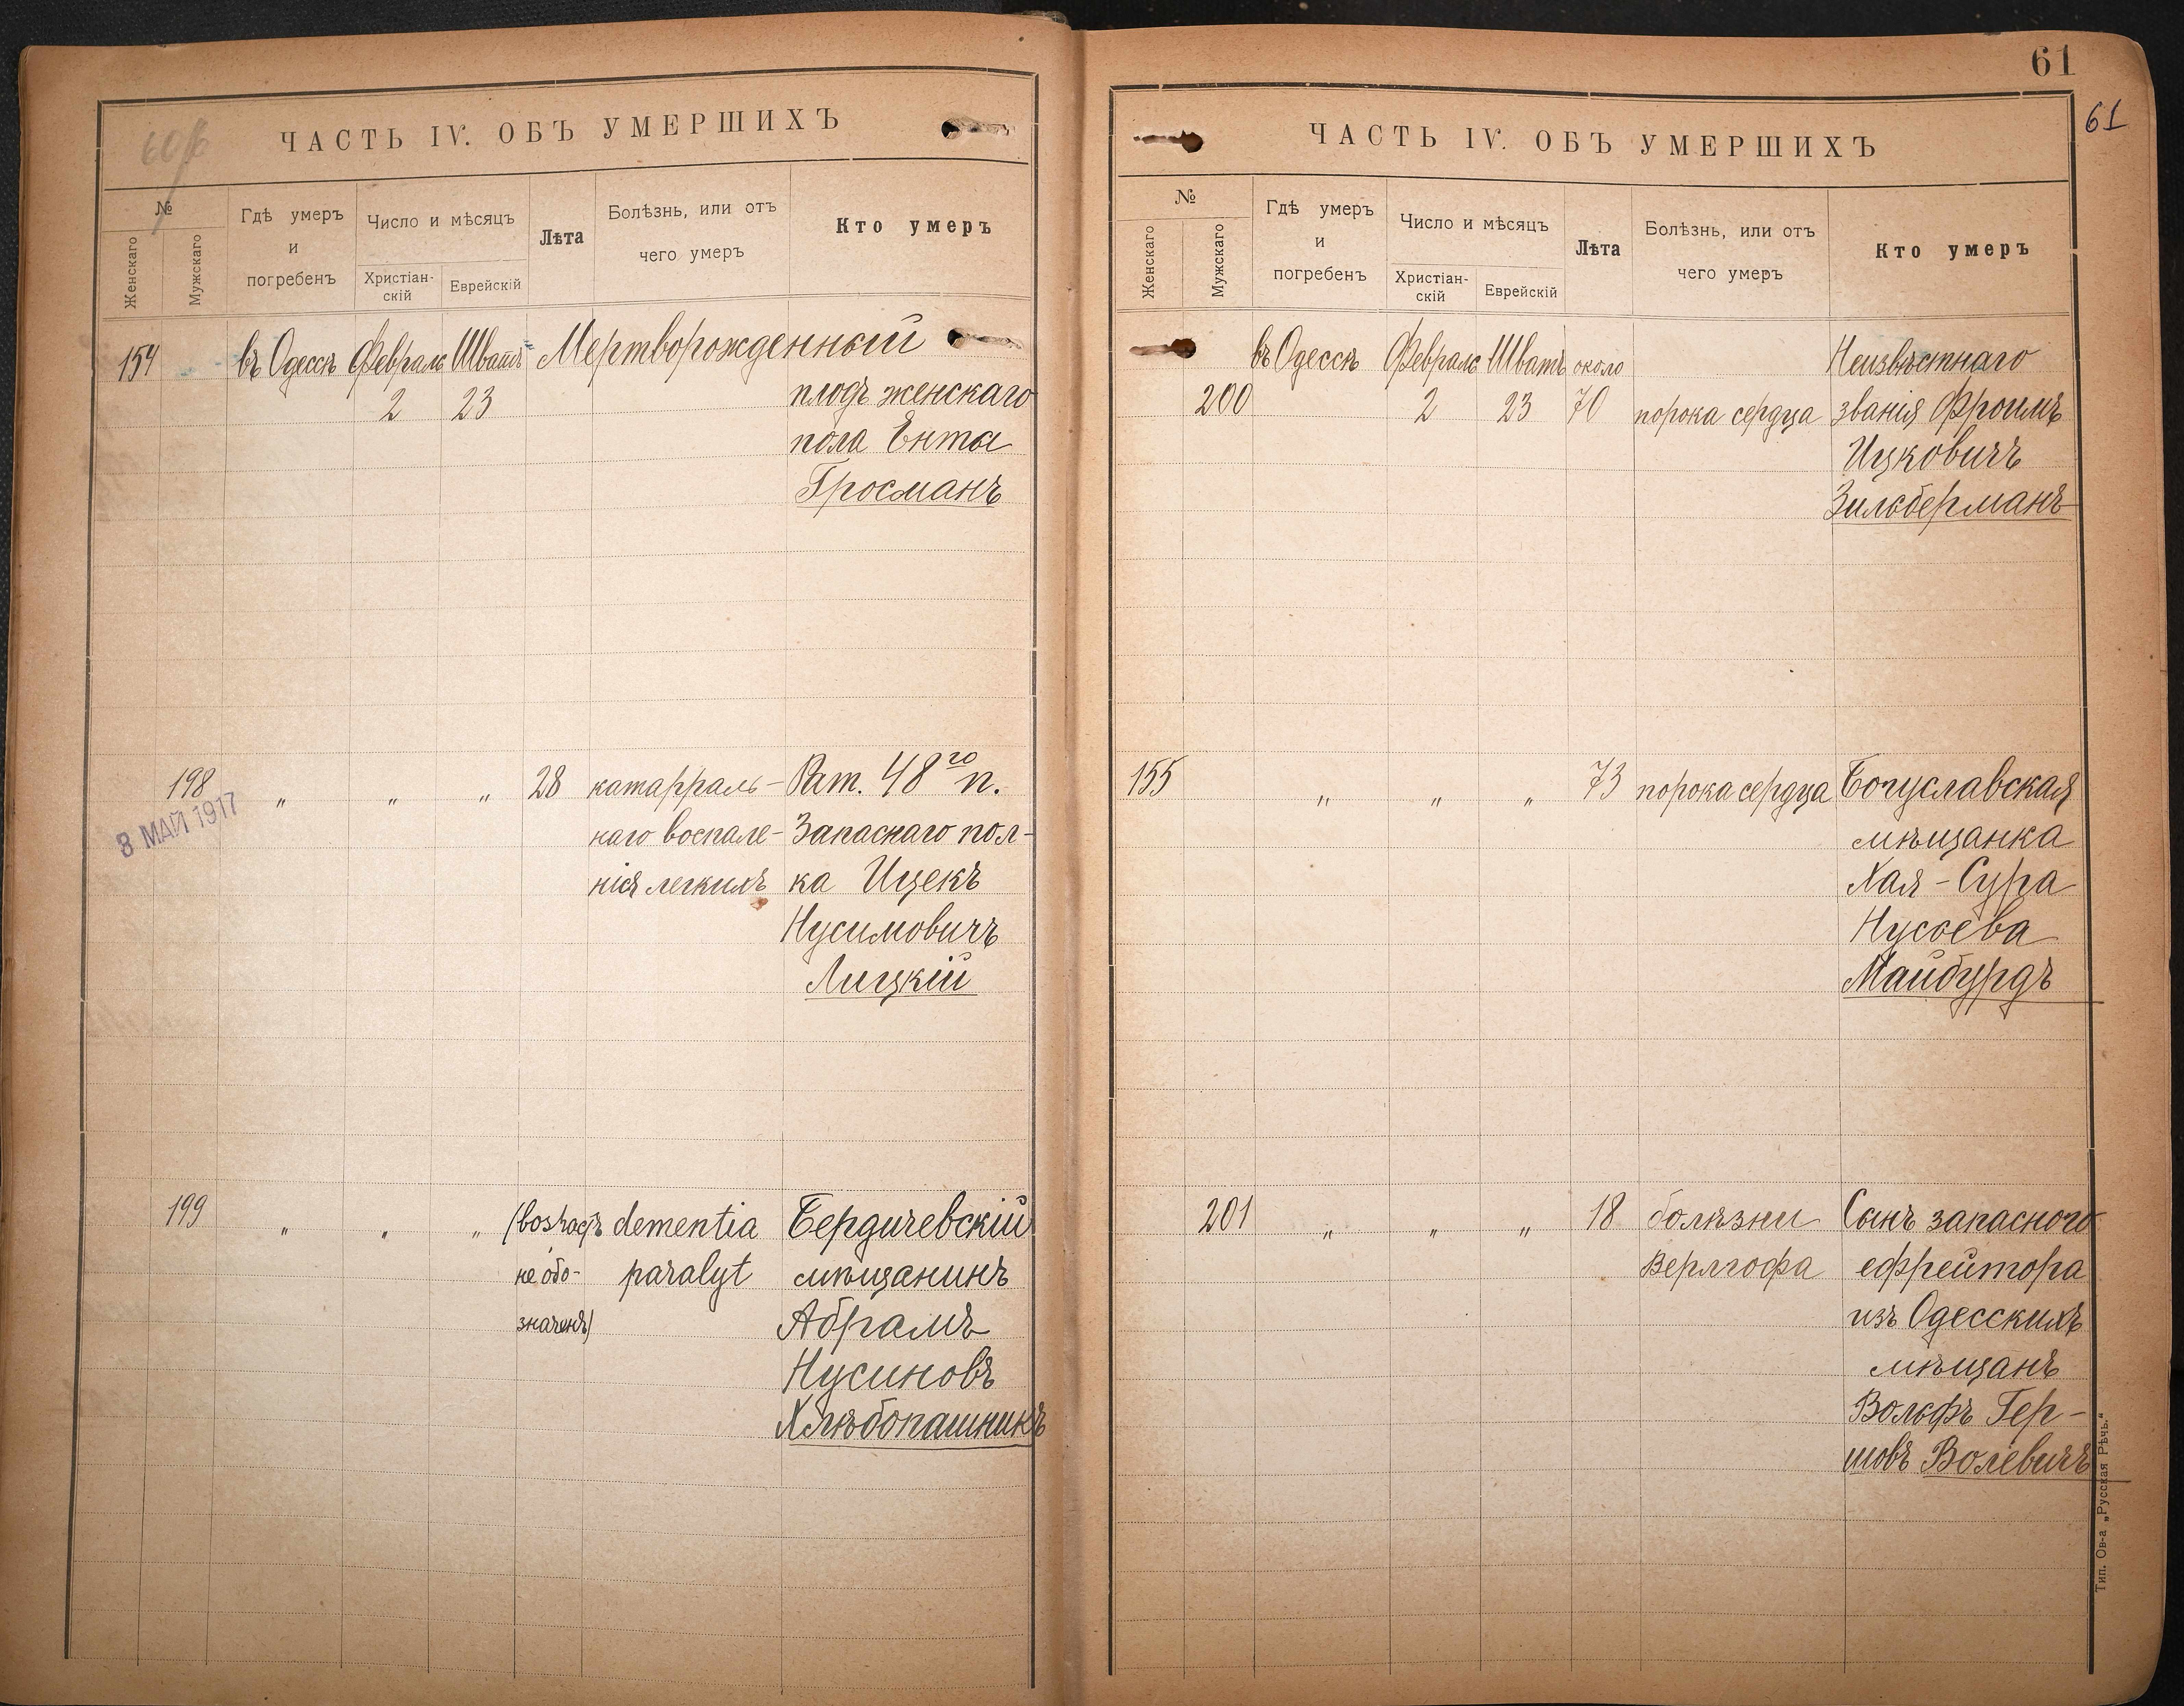 60 об
ЧАСТЬ IV. ОБЪ УМЕРШИХЪ
№
Женскаго
Мужскаго
Гдѣ умеръ
и
погребенъ
Число и мѣсяцъ
Христіан-
скій
Еврейскій
Лѣта
Болѣзнь, или отъ
чего умеръ
Кто умеръ
154 въ Одессѣ Февраль Шватъ Мертворожденный
2 23 плодъ женскаго
пола Ента
Гросманъ
198 " " " 28 катарраль- Рат. 48го п.
8 МАЙ 1917
наго воспале- Запаснаго пол-
нія легкихъ ка Ицекъ
Нусимовичъ
Лицкій
199 " " " (возрастъ dementia Бердичевскій
не обо- paralyt мѣщанинъ
значенъ) Абрамъ
Нусиновъ
Хлѣбопашникъ
61
61
ЧАСТЬ IV. ОБЪ УМЕРШИХЪ
№
Женскаго
Мужскаго
Гдѣ умеръ
и
погребенъ
Число и мѣсяцъ
Христіан-
скій
Еврейскій
Лѣта
Болѣзнь, или отъ
чего умеръ
Кто умеръ
въ Одессѣ Февраль Шватъ около Неизвѣстнаго
200 2 23 70 порока сердца званія Фроимъ
Ицковичъ
Зильберманъ
155 " " " 73 порока сердца Богуславская
мѣщанка
Хая-Сура
Нусоева
Майбурдъ
201 " " " 18 болѣзни Сынъ запасного
Верлгофа ефрейтора
изъ Одесскихъ
мѣщанъ
Вольфъ Гер-
шовъ Волевичъ
Тип. Ов-а „Русская Рѣчь."